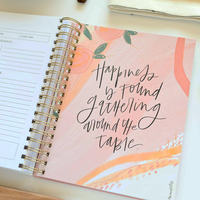 Happiness
is found
gathering
around the
table